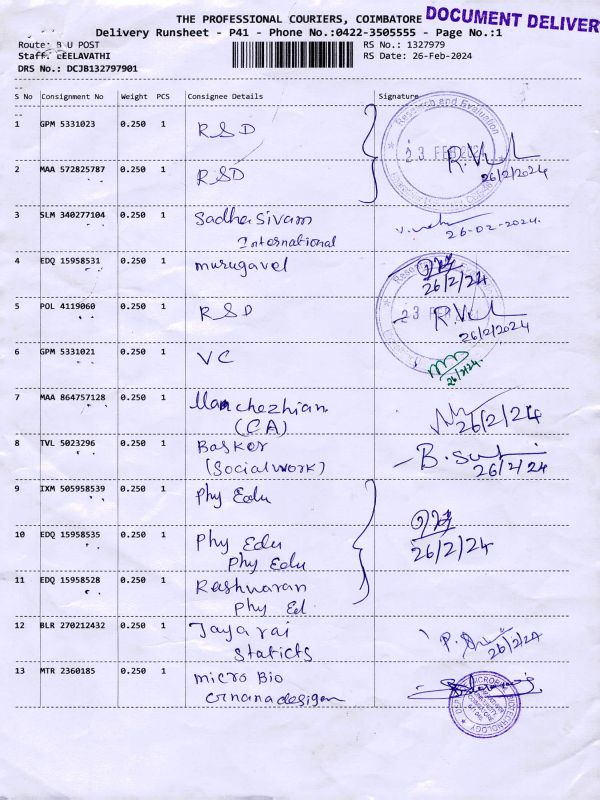 THE PROFESSIONAL COURIERS, COIMBATORE
DOCUMENT DELIVER
Delivery Runsheet - P41 - Phone No.:0422-3505555 - Page No.:1
Route: B U POST
RS No.: 1327979
Staff: LEELAVATHI
RS Date: 26-Feb-2024
DRS No.: DCJB132797901
S No Consignment No Weight PCS Consignee Details Signature
1 GPM 5331023 0.250 1 RSD
Research and Evaluation
23 FEB 2024
26/2/2024
2 MAA 572825787 0.250 1 RSD
3 SLM 340277104 0.250 1 Sadhasivam
International
26-02-2024.
4 EDQ 15958531 0.250 1 murugavel
26/2/24
5 POL 4119060 0.250 1 RSD
23
26/2/2024
6 GPM 5331021 0.250 1 VC
26/2/24.
7 MAA 864757128 0.250 1 Manchezhian
(CA)
26/2/24
8 TVL 5023296 0.250 1 Basker
(Social work)
26/2/24
9 IXM 505958539 0.250 1 Phy Edu
10 EDQ 15958535 0.250 1 Phy Edu
Phy Edu
26/2/24
11 EDQ 15958528 0.250 1 Rashwaran
Phy Ed
12 BLR 270212432 0.250 1 Jayarai
Staticts
26/2/24
13 MTR 2360185 0.250 1 micro Bio